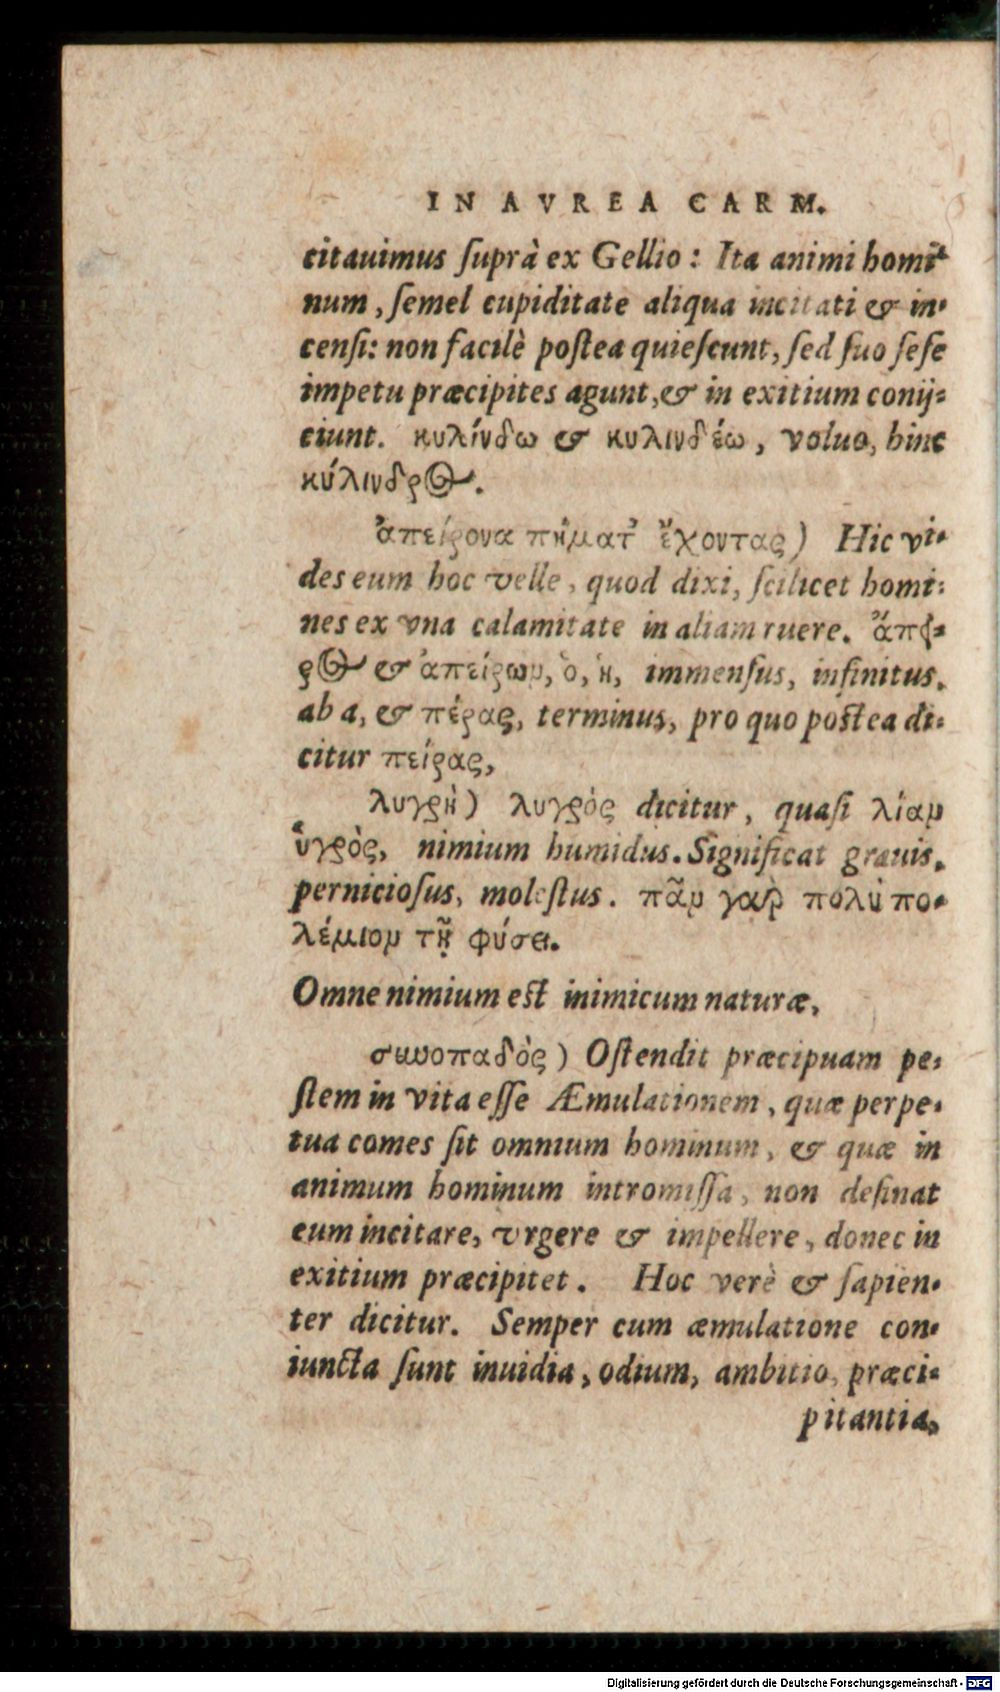 IN AVREA CARM.
citauimus ſuprà ex Gellio: Ita animi homi-
num, ſemel cupiditate aliqua incitati & in-
cenſi: non facilè poſtea quieſcunt, ſed ſuo ſeſe
impetu præcipites agunt, & in exitium conij-
ciunt. κυλίνδω & κυλινδέω, voluo, hinc
κύλινδρος.
ἀπείρονα πήματ' ἔχοντας) Hic vi-
des eum hoc velle, quod dixi, ſcilicet homi-
nes ex vna calamitate in aliam ruere. ἄπει-
ρος & ἀπείρων, ὁ, ἡ, immenſus, infinitus.
ab a, & πέρας, terminus, pro quo poſtea di-
citur πείρας,
λυγρὴ) λυγρὸς dicitur, quaſi λίαν
ὑγρὸς, nimium humidus. Significat grauis,
pernicioſus, moleſtus. πᾶν γαρ πολὺ πο-
λέμιον τῇ φύσει.
Omne nimium eſt inimicum naturæ,
συνοπαδὸς) Oſtendit præcipuam pe-
ſtem in vita eſſe Æmulationem, quæ perpe-
tua comes ſit omnium hominum, & quæ in
animum hominum intromiſſa, non deſinat
eum incitare, vrgere & impellere, donec in
exitium præcipitet. Hoc verè & ſapien-
ter dicitur. Semper cum æmulatione con-
iuncta ſunt inuidia, odium, ambitio, præci-
pitantia,
Digitalisierung gefördert durch die Deutsche Forschungsgemeinschaft - DFG